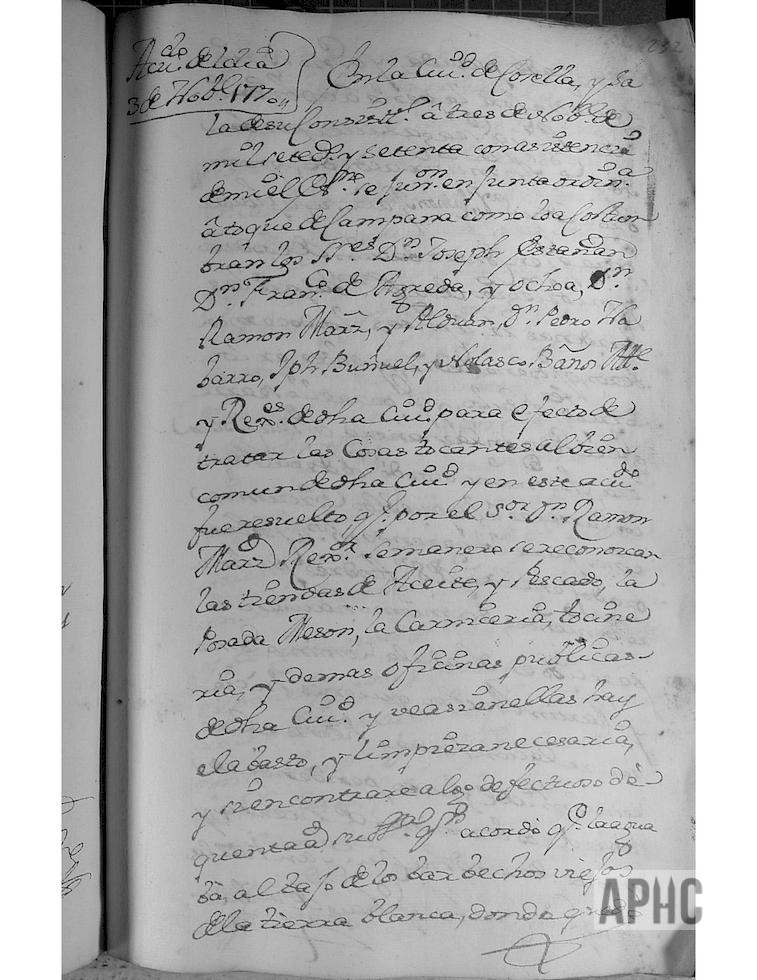 Acu.do de el dia
3 de Nob.e 1770,,
232
En la Ciu.d de Corella, y Sa
la de su Consist.l â tres de Nob.e de
mil seted.s y setenta con asistencia
de mi el Es.no se Jun.on en Junta ordin.a
â toque de Campana como lo acostum
bran los S.res D.n Joseph Escudero
D.n Fran.co de Agreda, y Ochoa, D.n
Ramon Marz, y Alduan, D.n Pedro Na
barro, Jph Buñuel, y Nolasco Baños Al.e
y Rex.es de dha Ciu.d para efecto de
tratar las Cosas tocantes al bien
comun de dha Ciu.d y en este acu.do
fue resuelto q.e por el S.or D.n Ramon
Marz Rex.or Semanero se reconozcan
las tiendas de Aceite, y Pescado, la
Posada Meson, la Carniceria, tocine
ria, y demas oficinas publicas
de dha Ciu.d y vea si en ellas hay
el abasto, y limpieza necesaria,
y si encontrare algo defectuoso dê
quenta â su S.ria acordó q.e la agua
ba, al bajo de los barbechos viejos
de la tierra blanca, donde quedo
APHC